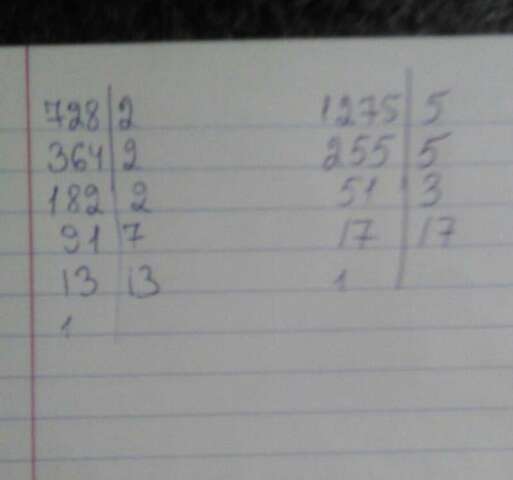 728|2
364|2
182|2
91|7
13|13
1|
1275|5
255|5
51|3
17|17
1|